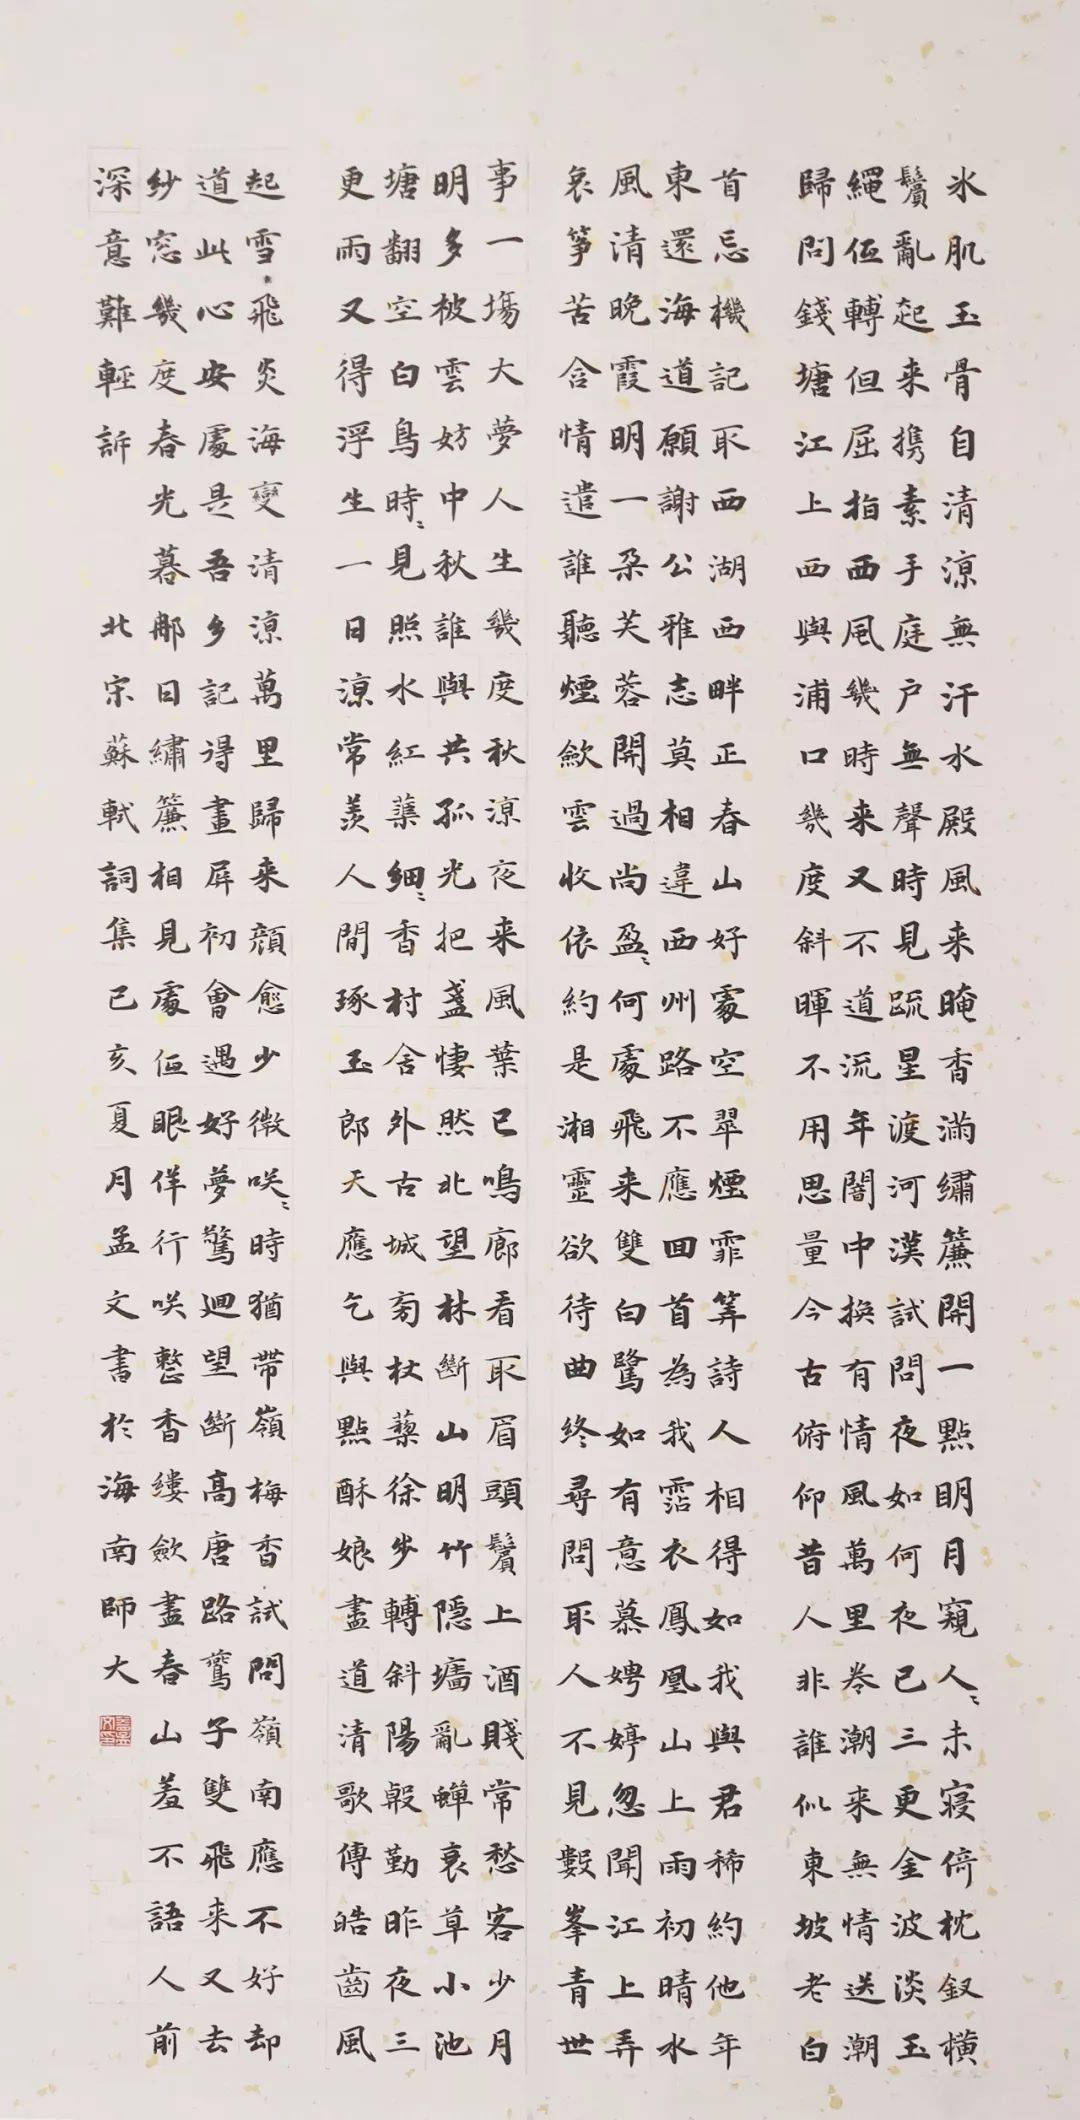 氷肌玉骨自清涼無汗水殿風来晻香滿繡簾開一點明月窺人〻未寝倚枕釵横
鬢亂起来携素手庭户無聲時見疏星渡河漢試問夜如何夜已三更金波淡玉
繩低轉但屈指西風幾時来又不道流年闇中换有情風萬里卷潮来無情送潮
歸問錢塘江上西與浦口幾度斜暉不用思量今古俯仰昔人非誰似東坡老白
首忘機記取西湖西畔正春山好處空翠煙霏筭詩人相得如我與君稀約他年
東還海道願謝公雅志莫相違西州路不應回首為我霑衣鳳凰山上雨初晴水
風清晚霞明一朶芙蓉開過尚盈〻何處飛来雙白鷺如有意慕娉婷忽聞江上弄
哀筝苦含情遣誰聽煙歛雲收依約是湘靈欲待曲终尋問取人不見數峯青世
事一塲大夢人生幾度秋涼夜来風葉已鳴廊看取眉頭鬢上酒賤常愁客少月
明多被雲妨中秋誰與共孤光把盞悽然北望林斷山明竹隱墻亂蟬衰草小池
塘翻空白鳥時〻見照水紅蕖細〻香村舍外古城旁杖藜徐步轉斜陽殷勤昨夜三
更雨又得浮生一日涼常羡人間琢玉郎天應乞與點酥娘盡道清歌傳皓齒風
起雪飛炎海變清涼萬里歸来顔愈少微咲〻時猶帶嶺梅香試問嶺南應不好却
道此心安處是吾乡記得畫屏初會遇好夢驚迴望斷高唐路鷰子雙飛来又去
紗窓幾度春光暮那日繡簾相見處低眼佯行咲整香縷歛盡春山羞不語人前
深意難輕訴 北宋蘇軾詞集己亥夏月孟文書於海南師大